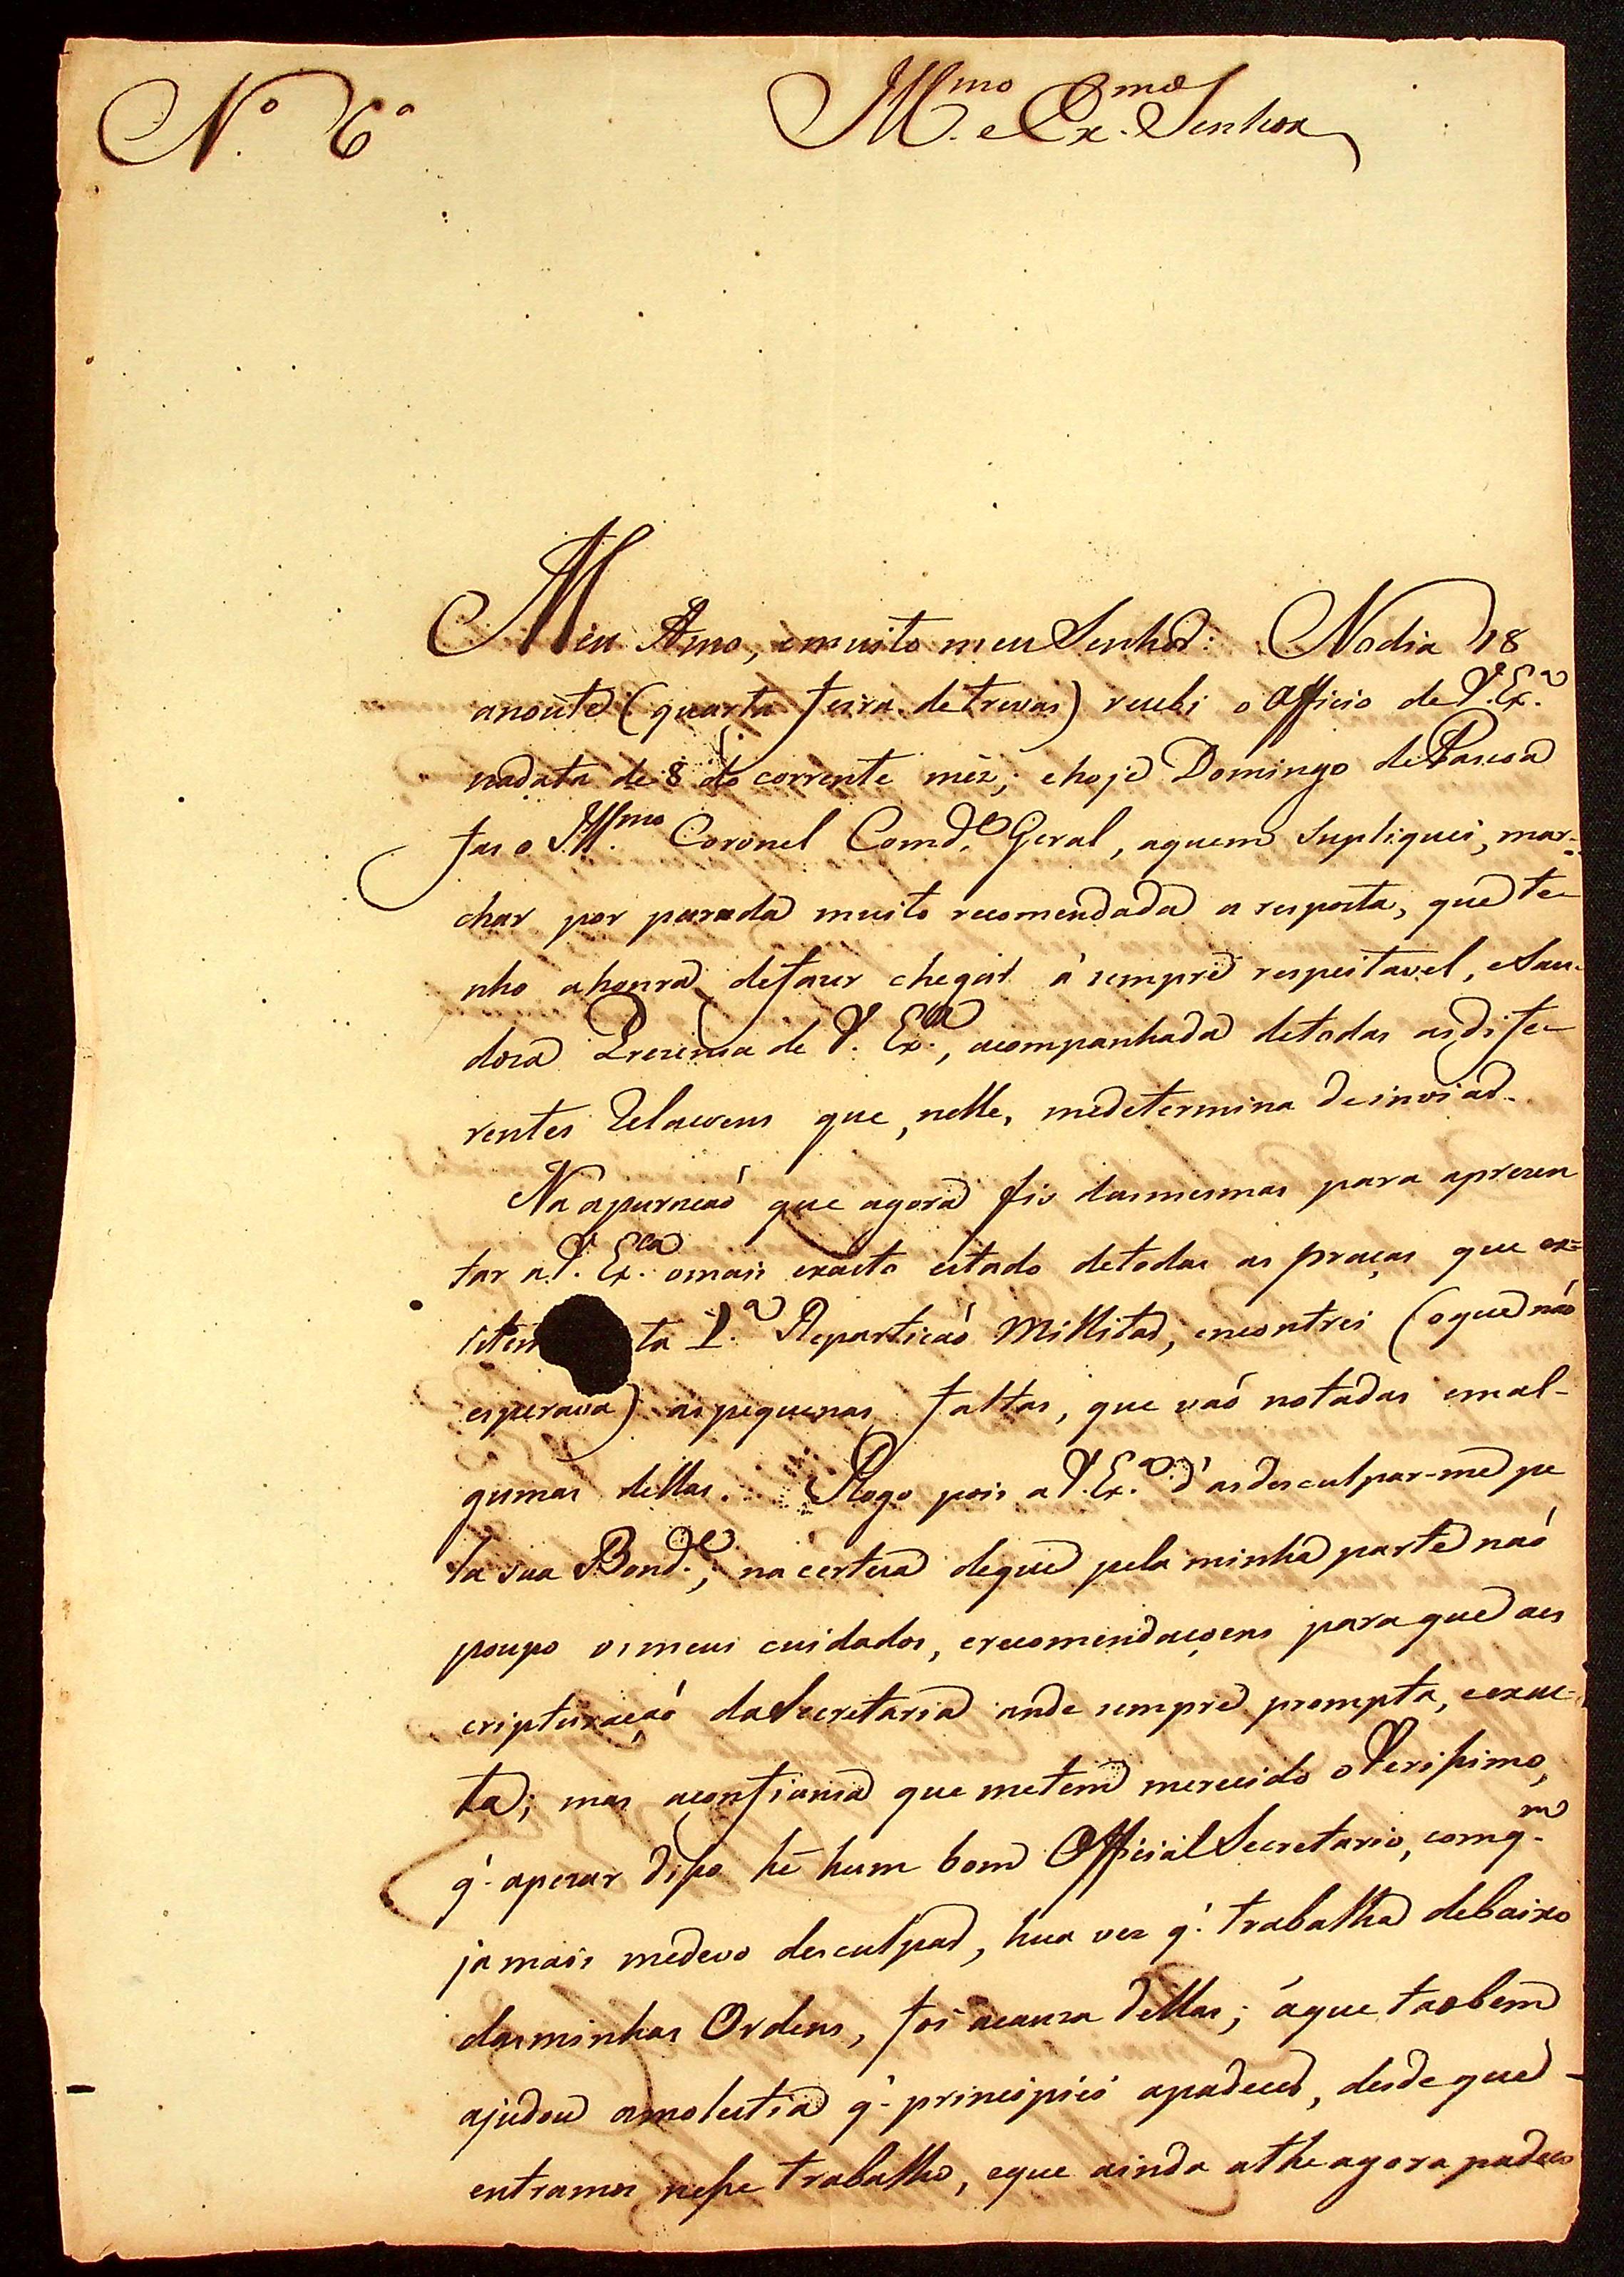 N.º 6º
Ill.mo e Ex.mo Senhor
Meu Amo, e muito meu Senhor: No dia 18
a noute (quarta feira de trevas) recebi o Officio de V. Ex.a
na data de 8 do corrente mêz; e hoje Domingo de Pascoa
fas o Ill.mo Coronel Comd.e Geral, a quem supliquei, mar-
char por parada muito recomendada a resposta, que te-
nho a honra de fazer chegar á sempre respeitavel, e Sau-
doza Prezensa de V. Ex.ca, acompanhada de todas as dife-
rentes Relacoens que, nelle, me determina de inviar.
Na apuracaõ que agora fis das mesmas para aprezen
tar a V. Ex.ca o mais exacto estado de todas as praças que ex=
istem ta 1.a Reparticaõ Millitar, encontrei (o que naõ
esperava) as pequenas faltas, que vaõ notadas em al-
gumas dellas. Rogo pois a V. Ex.a d'as desculpar-me pe
la sua Bond.e; na certeza de que pela minha parte naõ
poupo os meus cuidados, e recomendaçoens para que a es
cripturaçaõ da Secretaria ande sempre prompta, e exac-
ta; mas a confiansa que me tem merecido o Verissimo,
q.' apezar disso hé hum bom Official Secretario, com q.m
ja mais me devo desculpar, hua vez q.' trabalha debaixo
das minhas Ordens, foi a cauza dellas; á que taobem
ajudou a molestia q.' principiou a padecer, desde que
entramos nesse trabalho, e que ainda athe agora padece